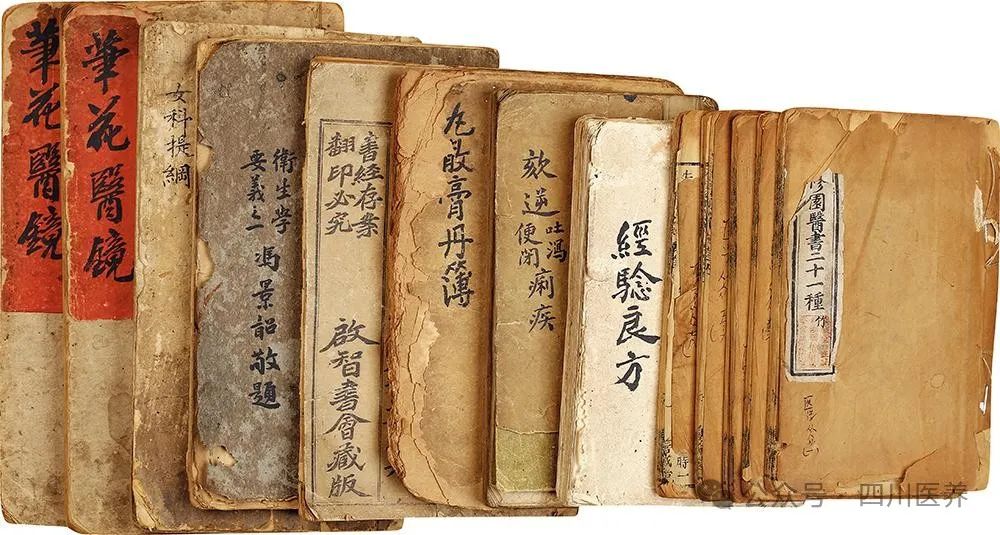 筆花醫鏡
筆花醫鏡
女科提綱
衛生學
要義
馮景韶敬題
書經存案
翻印必究
啟智書會藏版
丸散膏丹簿
欬逆
吐瀉
便閉
痢疾
經驗良方
時一
修園醫書二十一種
竹
公众号 · 四川医养